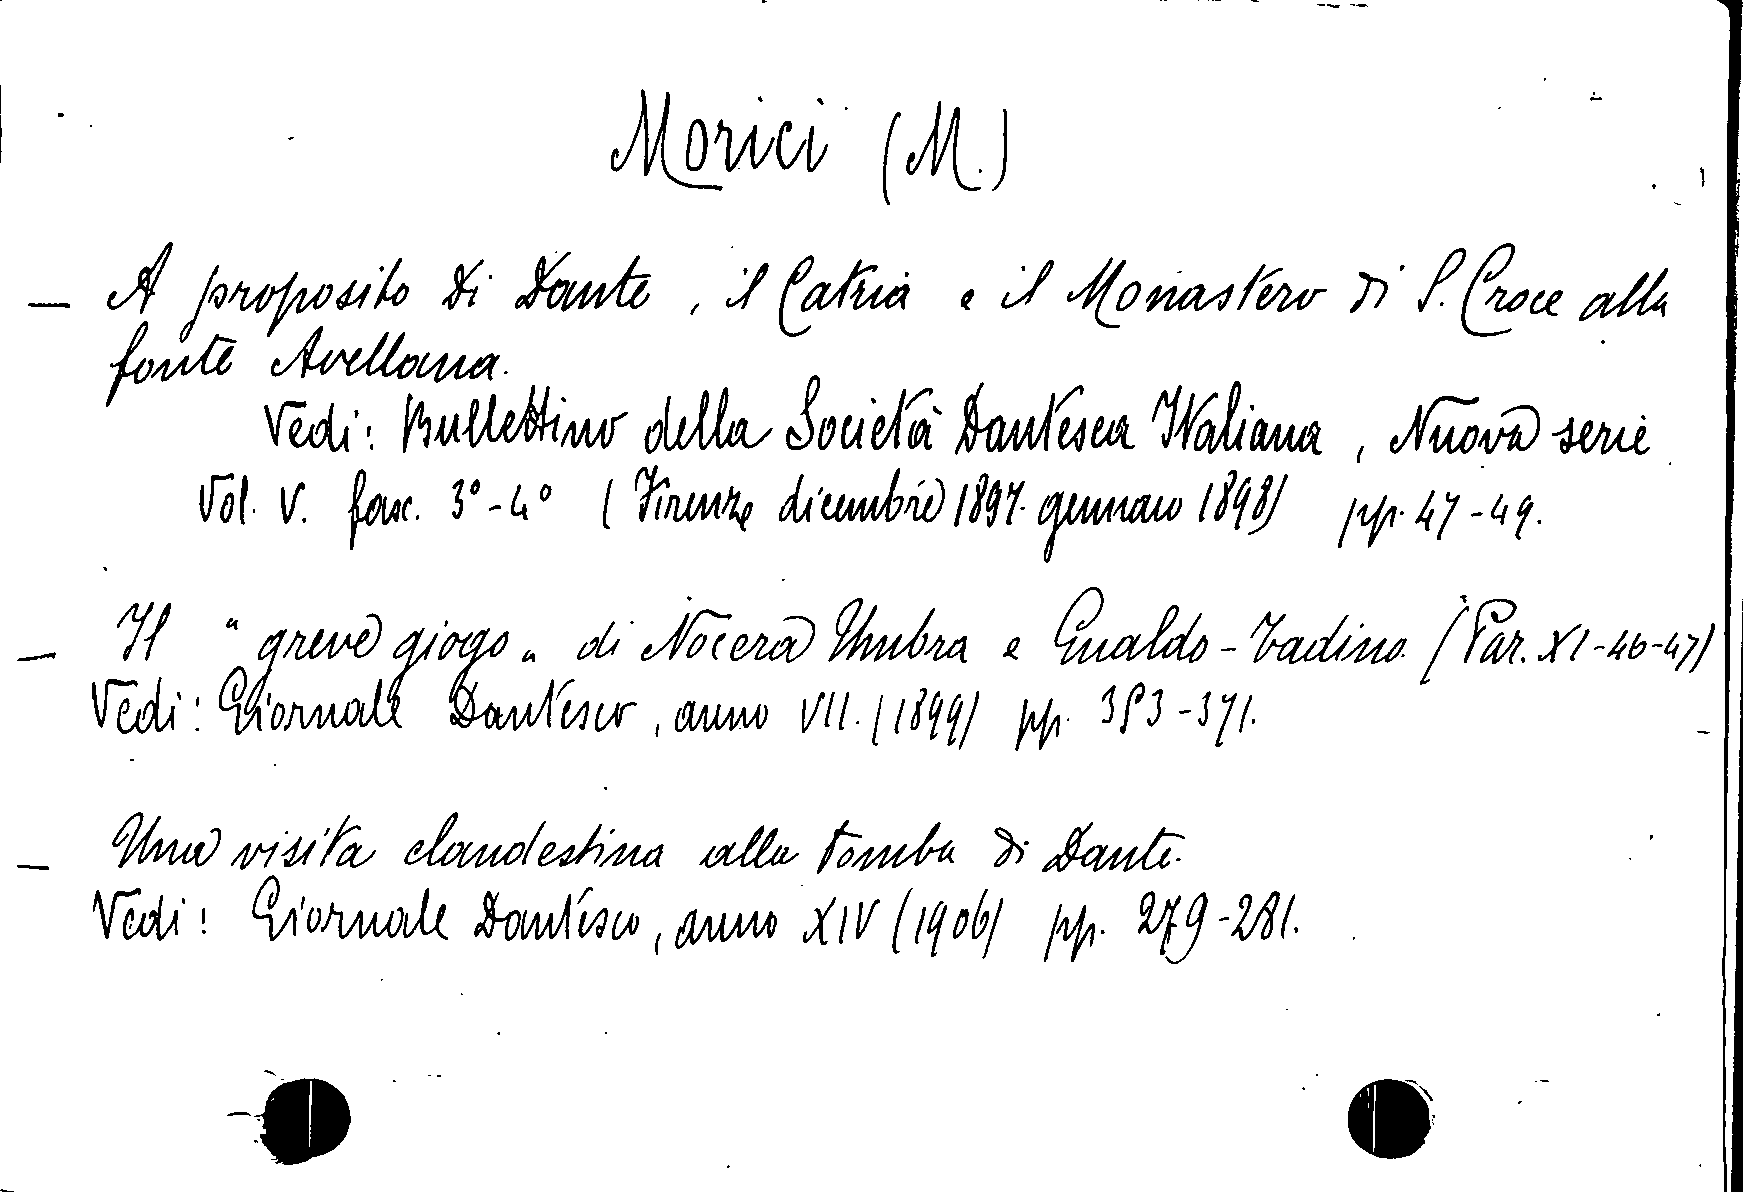 Morici (M.)
— A proposito di Dante, il Catria e il Monastero di S. Croce alla
fonte Avellana.
Vedi: Bullettino della Società Dantesca Italiana, Nuova serie
Vol. V. fasc. 3° - 4° (Firenze dicembre 1897. gennaio 1898) pp. 47-49.
— Il "greve giogo" di Nocera Umbra e Gualdo-Tadino (Par. XI-46-47)
Vedi: Giornale Dantesco, anno VII. (1899) pp. 353-371.
— Una visita clandestina alla tomba di Dante.
Vedi: Giornale Dantesco, anno XIV (1906) pp. 279-281.